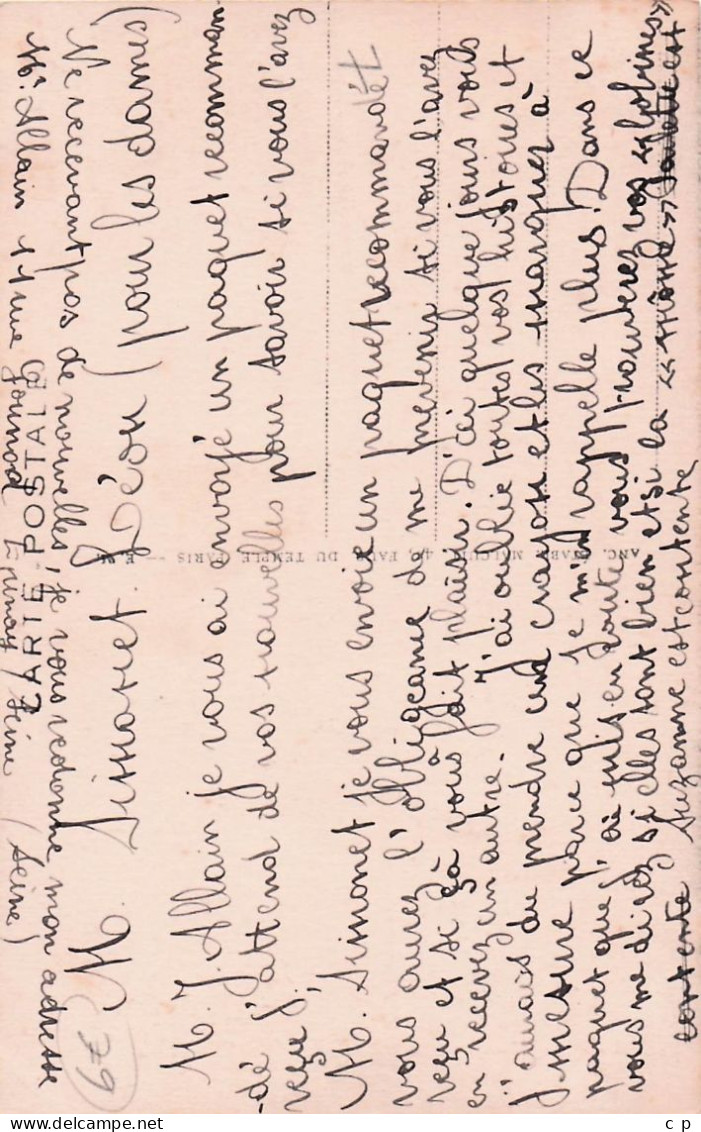 Ne recevant pas de nouvelles, je vous redonne mon adresse
Mr. Allain 11 rue Gounod Epinay / Seine (Seine)
CARTE POSTALE
M. Simonet Léon (pour les dames)
M. J. Allain je vous ai envoyé un paquet recomman
-dé j'attend de vos nouvelles pour savoir si vous l'avez
reçu.
M. Simonet je vous envoie un paquet recommandét
vous aurez l'obligeance de me prévenir si vous l'avez
reçu et si çà vous fait plaisir. D'ici quelque jours vous
en recevez un autre. J'ai oublié toutes vos histoires et
j'aurais du prendre un crayon et les marquer à
mesure parce que je m'en rappelle plus! Dans ce
paquet que j'ai mis en doute vous trouverez vos «bobines»
vous me direz si elles sont bien et si la « môme »
contente Suzanne est contente
FAUB. DU TEMPLE, PARIS
79
c p